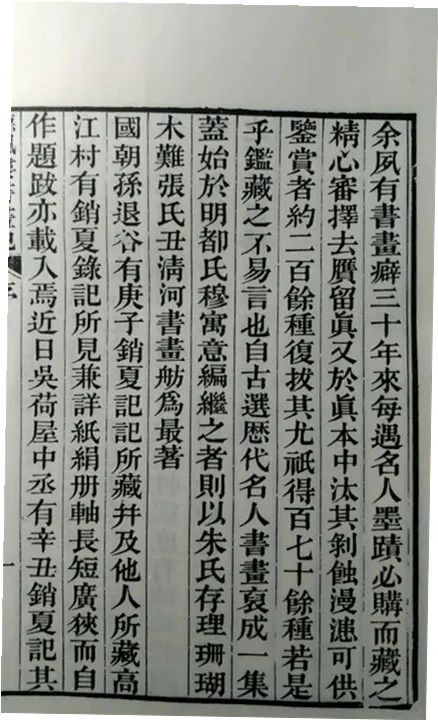 余夙有書畫癖三十年來每遇名人墨蹟必購而藏之
精心審擇去贋留眞又於眞本中汰其剝蝕漫漶可供
鑒賞者約二百餘種復拔其尤祇得百七十餘種若是
乎鑑藏之不易言也自古選歴代名人書畫裒成一集
蓋始於明都氏穆寓意編繼之者則以朱氏存理珊瑚
木難張氏丑淸河書畫舫爲最著
國朝孫退谷有庚子銷夏記記所藏幷及他人所藏高
江村有銷夏錄記所見兼詳紙絹册軸長短廣狹而自
作題跋亦載入焉近日吳荷屋中丞有辛丑銷夏記其
一